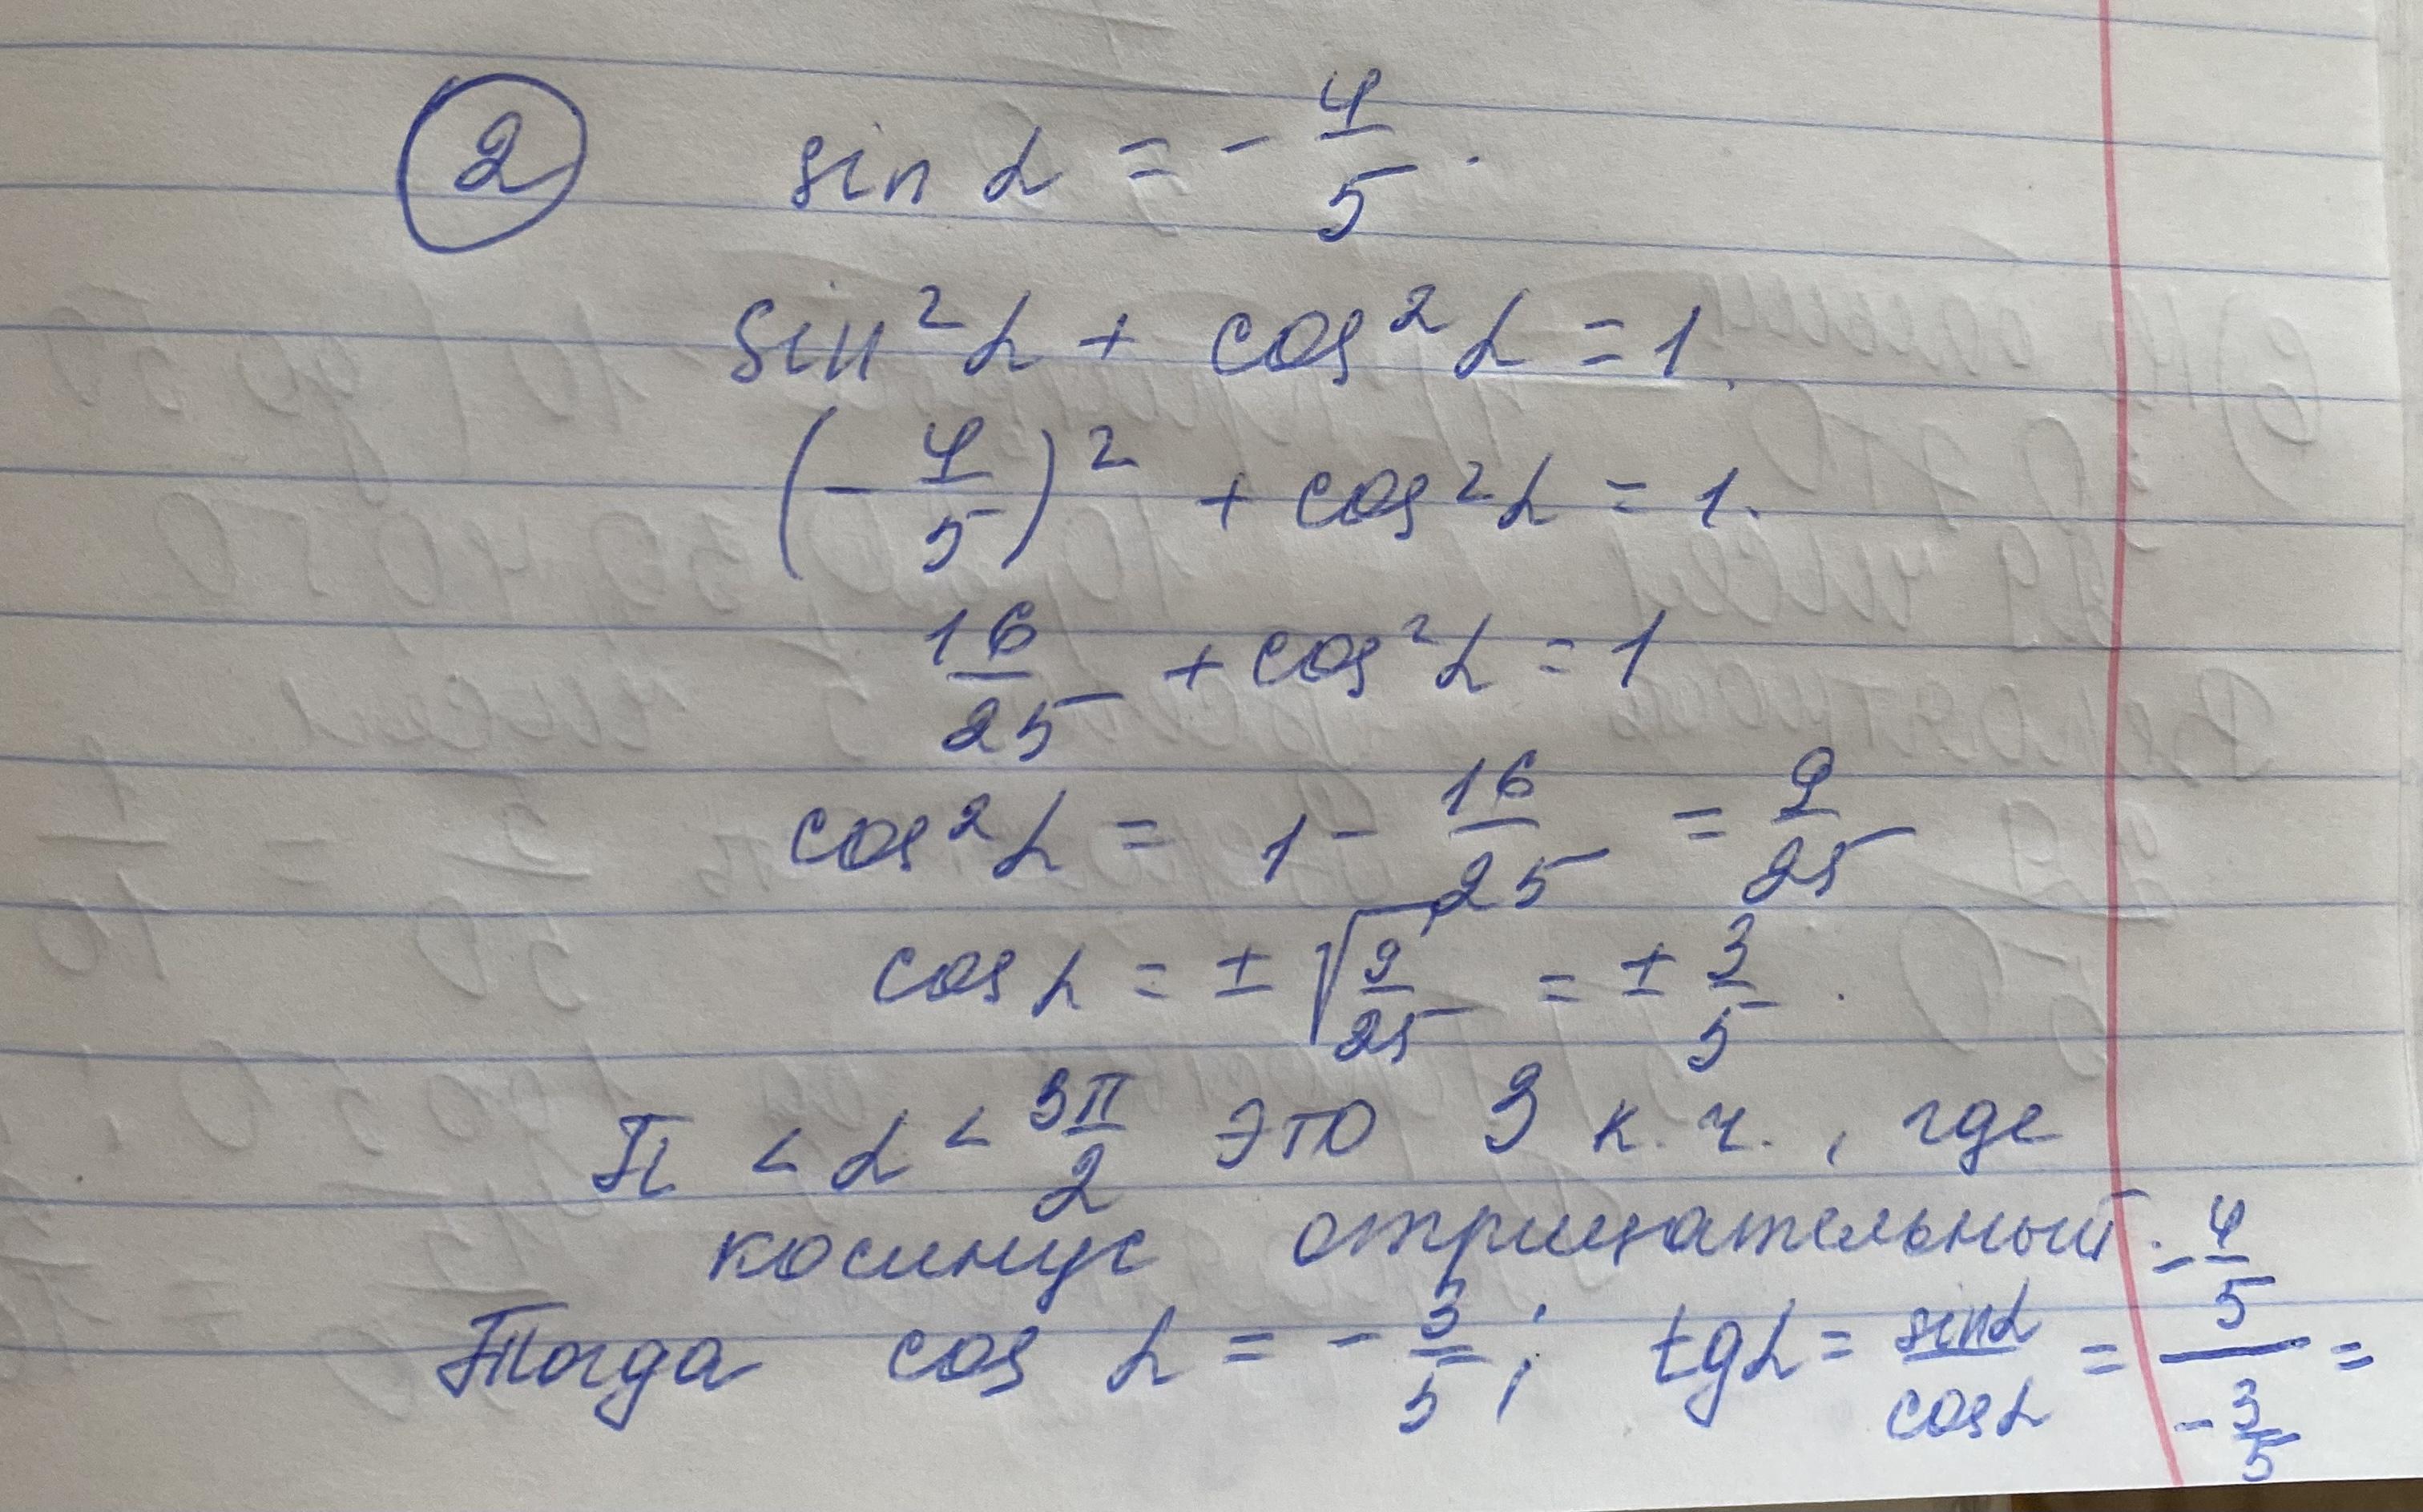 ② sin α = - 4/5.
sin²α + cos²α = 1.
(- 4/5)² + cos²α = 1.
16/25 + cos²α = 1
cos²α = 1 - 16/25 = 9/25
cos α = ± √(9/25) = ± 3/5.
π < α < 3π/2 это 3 к.ч., где
косинус отрицательный.
Тогда cos α = - 3/5; tg α = sin α/cos α = (- 4/5)/(- 3/5) =